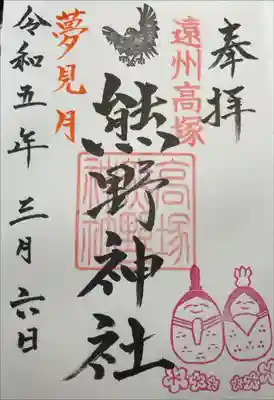 奉拝
遠州高塚
熊野神社
高塚
熊野
神社
夢見月
令和五年三月六日